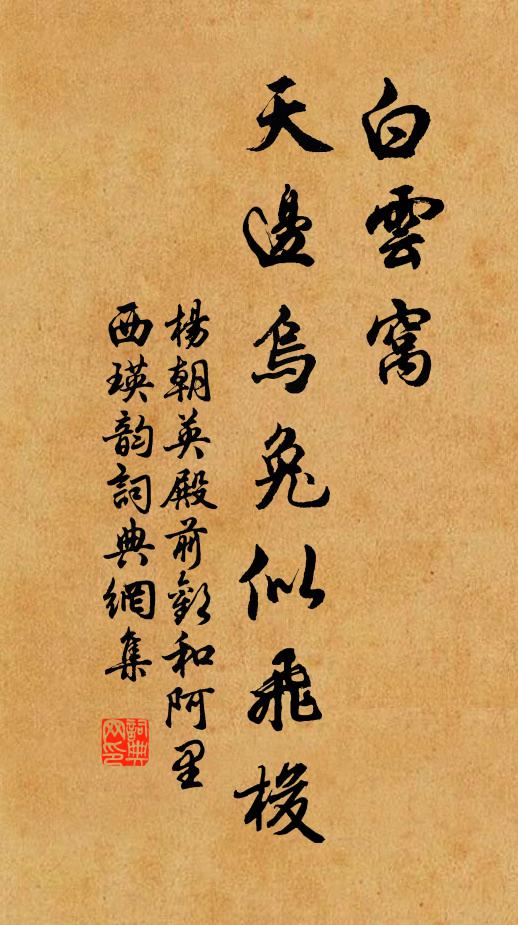 白雲窩
天邊烏兔似飛梭
楊朝英殿前歡和阿里
西瑛韵詞典網集
詞典网印